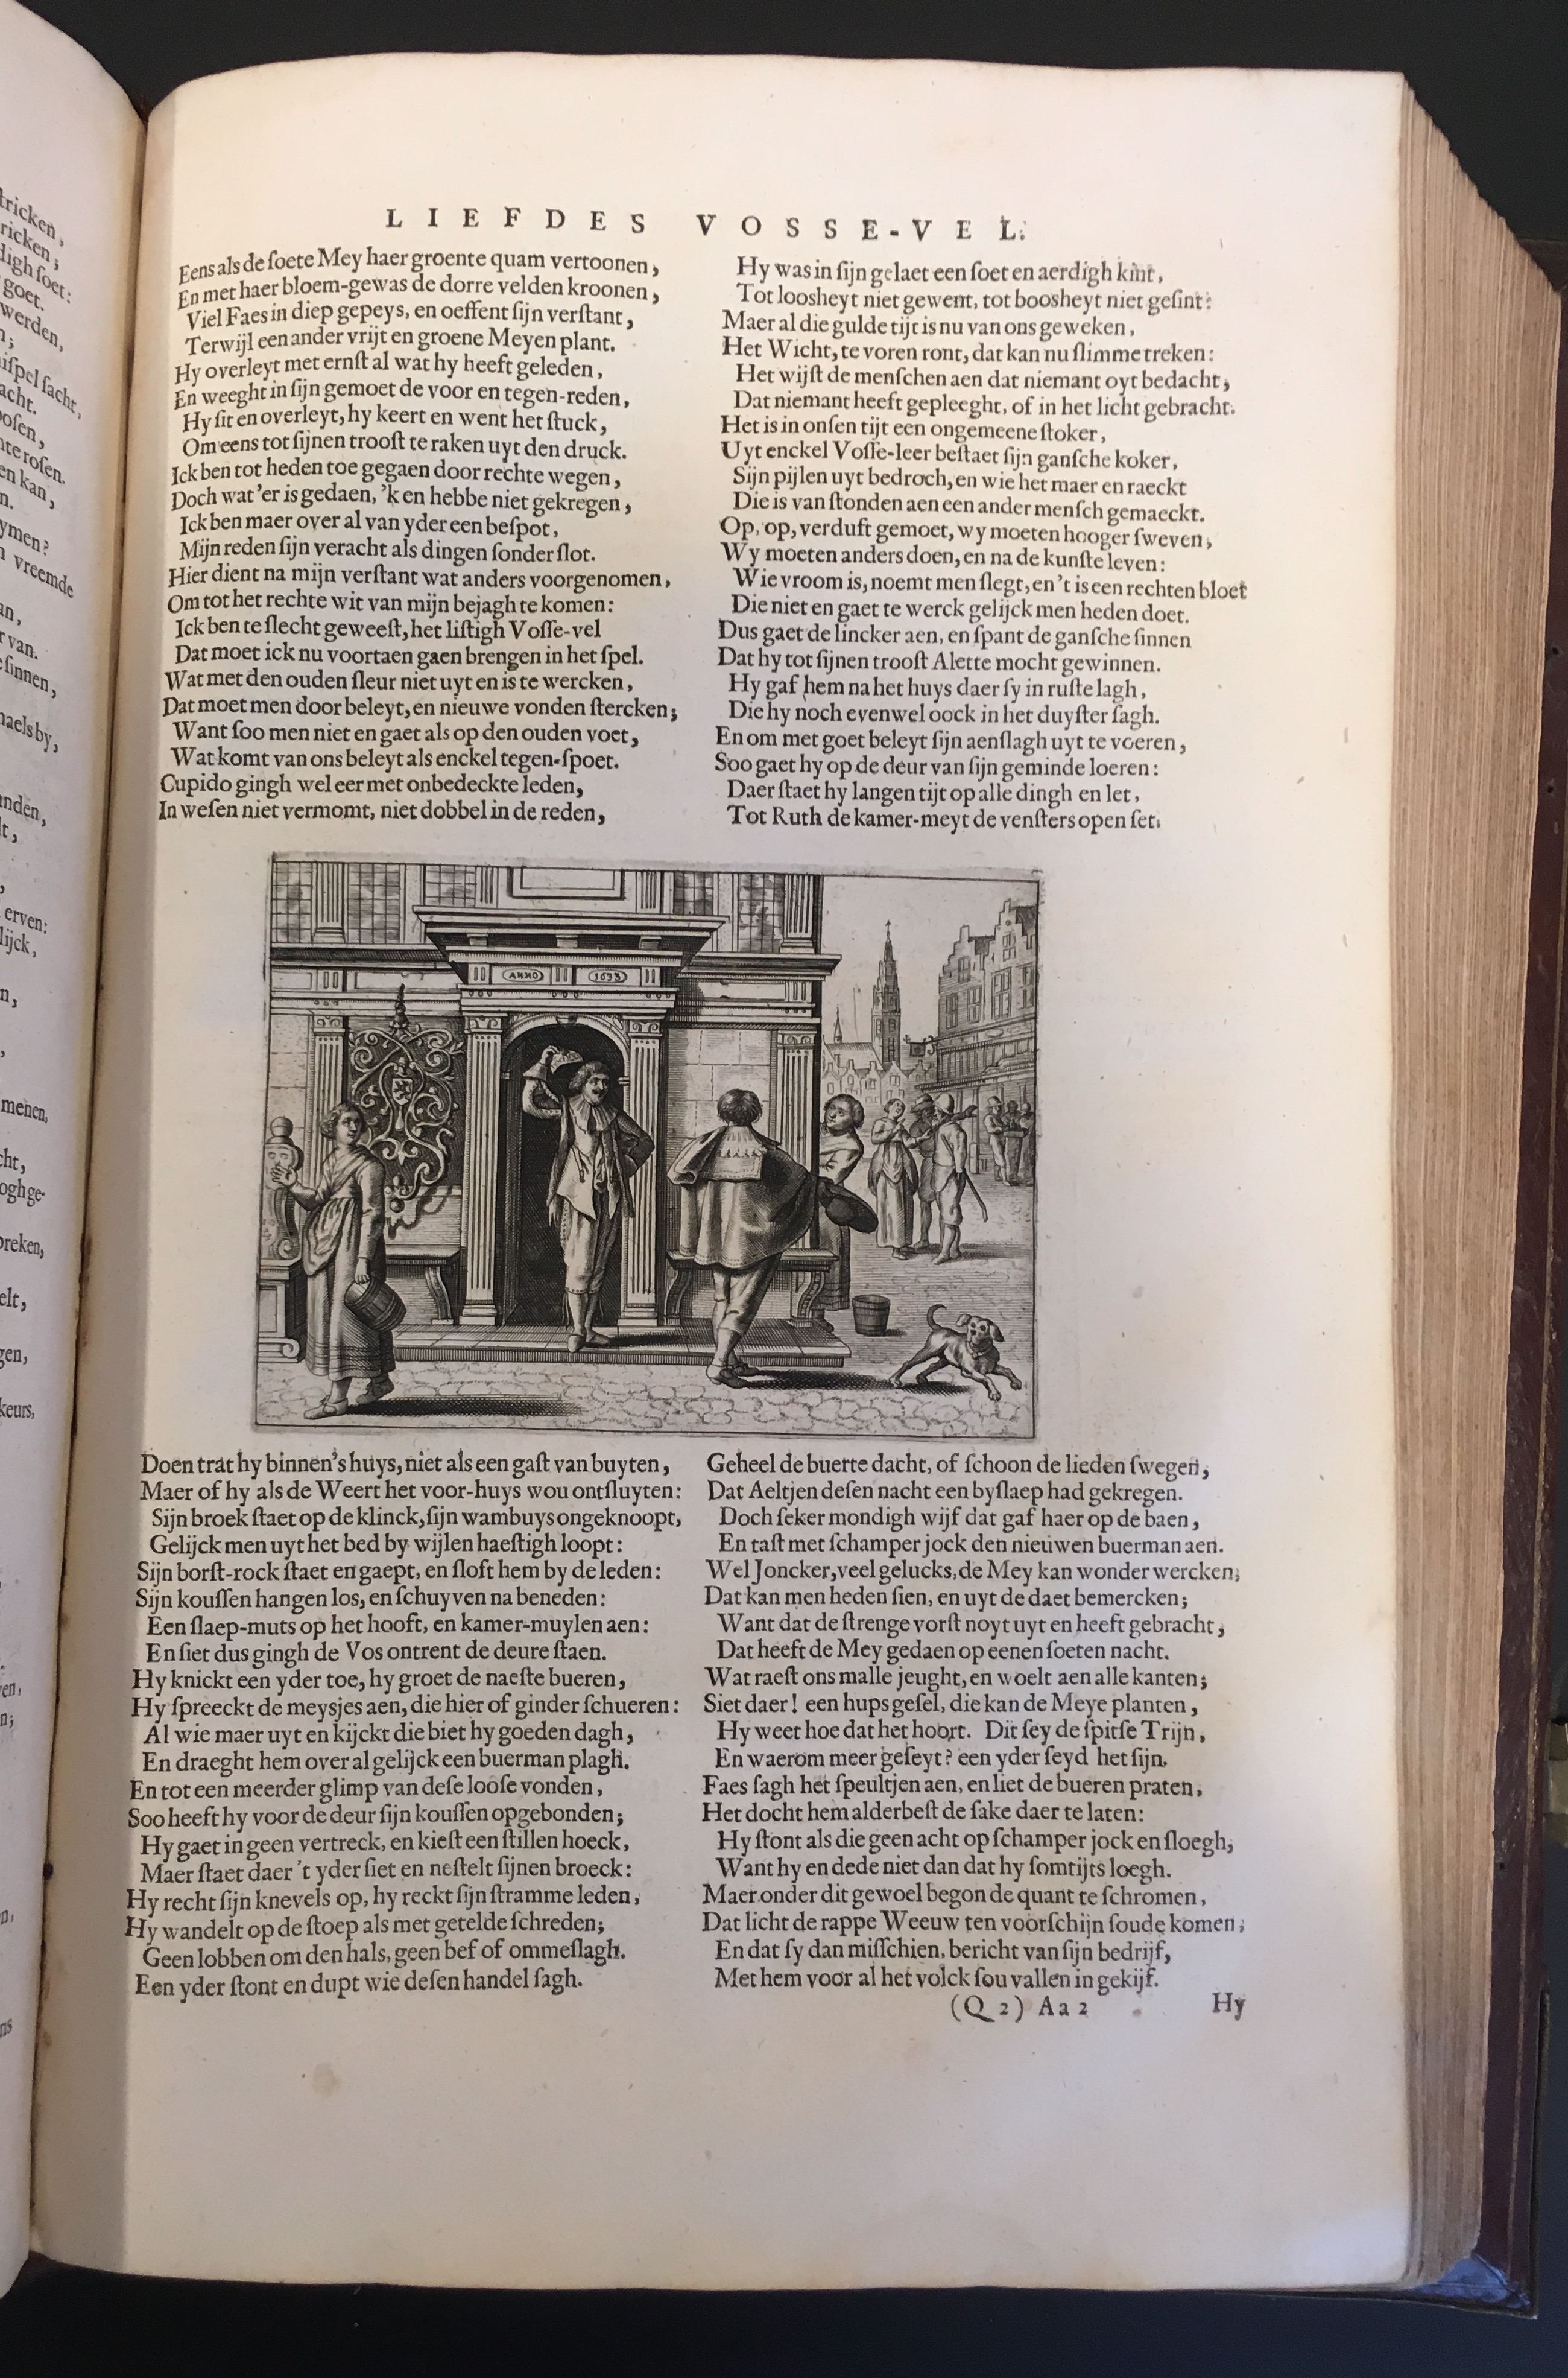 LIEFDES VOSSE-VEL.
Eens als de ſoete Mey haer groente quam vertoonen,
En met haer bloem-gewas de dorre velden kroonen,
Viel Faes in diep gepeys, en oeffent ſijn verſtant,
Terwijl een ander vrijt en groene Meyen plant.
Hy overleyt met ernſt al wat hy heeft geleden,
En weeght in ſijn gemoet de voor en tegen-reden,
Hy ſit en overleyt, hy keert en went het ſtuck,
Om eens tot ſijnen trooſt te raken uyt den druck.
Ick ben tot heden toe gegaen door rechte wegen,
Doch wat'er is gedaen, 'k en hebbe niet gekregen,
Ick ben maer over al van yder een beſpot,
Mijn reden ſijn veracht als dingen ſonder ſlot.
Hier dient na mijn verſtant wat anders voorgenomen,
Om tot het rechte wit van mijn bejagh te komen:
Ick ben te ſlecht geweeſt, het liſtigh Voſſe-vel
Dat moet ick nu voortaen gaen brengen in het ſpel.
Wat met den ouden ſleur niet uyt en is te wercken,
Dat moet men door beleyt, en nieuwe vonden ſtercken;
Want ſoo men niet en gaet als op den ouden voet,
Wat komt van ons beleyt als enckel tegen-ſpoet.
Cupido gingh wel eer met onbedeckte leden,
In weſen niet vermomt, niet dobbel in de reden,
Hy was in ſijn gelaet een ſoet en aerdigh kint,
Tot loosheyt niet gewent, tot boosheyt niet geſint:
Maer al die gulde tijt is nu van ons geweken,
Het Wicht, te voren ront, dat kan nu ſlimme treken:
Het wijſt de menſchen aen dat niemant oyt bedacht,
Dat niemant heeft gepleeght, of in het licht gebracht.
Het is in onſen tijt een ongemeene ſtoker,
Uyt enckel Voſſe-leer beſtaet ſijn ganſche koker,
Sijn pijlen uyt bedroch, en wie het maer en raeckt
Die is van ſtonden aen een ander menſch gemaeckt.
Op, op, verduft gemoet, wy moeten hooger ſweven,
Wy moeten anders doen, en na de kunſte leven:
Wie vroom is, noemt men ſlegt, en 't is een rechten bloet
Die niet en gaet te werck gelijck men heden doet.
Dus gaet de lincker aen, en ſpant de ganſche ſinnen
Dat hy tot ſijnen trooſt Alette mocht gewinnen.
Hy gaf hem na het huys daer ſy in ruſte lagh,
Die hy noch evenwel oock in het duyſter ſagh.
En om met goet beleyt ſijn aenſlagh uyt te voeren,
Soo gaet hy op de deur van ſijn geminde loeren:
Daer ſtaet hy langen tijt op alle dingh en let,
Tot Ruth de kamer-meyt de venſters open ſet.
ANNO 1633
Doen trat hy binnen's huys, niet als een gaſt van buyten,
Maer of hy als de Weert het voor-huys wou ontſluyten:
Sijn broek ſtaet op de klinck, ſijn wambuys ongeknoopt,
Gelijck men uyt het bed by wijlen haeſtigh loopt:
Sijn borſt-rock ſtaet en gaept, en ſloft hem by de leden:
Sijn kouſſen hangen los, en ſchuyven na beneden:
Een ſlaep-muts op het hooft, en kamer-muylen aen:
En ſiet dus gingh de Vos ontrent de deure ſtaen.
Hy knickt een yder toe, hy groet de naeſte bueren,
Hy ſpreeckt de meysjes aen, die hier of ginder ſchueren:
Al wie maer uyt en kijckt die biet hy goeden dagh,
En draeght hem over al gelijck een buerman plagh.
En tot een meerder glimp van deſe looſe vonden,
Soo heeft hy voor de deur ſijn kouſſen opgebonden;
Hy gaet in geen vertreck, en kieſt een ſtillen hoeck,
Maer ſtaet daer 't yder ſiet en neſtelt ſijnen broeck:
Hy recht ſijn knevels op, hy reckt ſijn ſtramme leden,
Hy wandelt op de ſtoep als met getelde ſchreden;
Geen lobben om den hals, geen bef of ommeſlagh.
Een yder ſtont en dupt wie deſen handel ſagh.
Geheel de buerte dacht, of ſchoon de lieden ſwegen,
Dat Aeltjen deſen nacht een byſlaep had gekregen.
Doch ſeker mondigh wijf dat gaf haer op de baen,
En taſt met ſchamper jock den nieuwen buerman aen.
Wel Joncker, veel gelucks, de Mey kan wonder wercken,
Dat kan men heden ſien, en uyt de daet bemercken;
Want dat de ſtrenge vorſt noyt uyt en heeft gebracht,
Dat heeft de Mey gedaen op eenen ſoeten nacht.
Wat raeſt ons malle jeught, en woelt aen alle kanten;
Siet daer! een hups geſel, die kan de Meye planten,
Hy weet hoe dat het hoort. Dit ſey de ſpitſe Trijn,
En waerom meer geſeyt? een yder ſeyd het ſijn.
Faes ſagh het ſpeultjen aen, en liet de bueren praten,
Het docht hem alderbeſt de ſake daer te laten:
Hy ſtont als die geen acht op ſchamper jock en ſloegh,
Want hy en dede niet dan dat hy ſomtijts loegh.
Maer onder dit gewoel begon de quant te ſchromen,
Dat licht de rappe Weeuw ten voorſchijn ſoude komen,
En dat ſy dan miſſchien, bericht van ſijn bedrijf,
Met hem voor al het volck ſou vallen in gekijf.
(Q 2) Aa 2 Hy